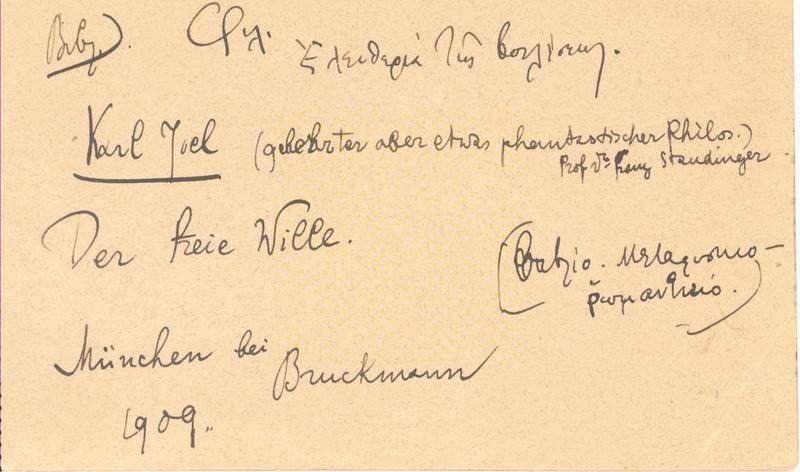 Βιβλ. Φιλ. Ἐλευθερία τῆς βουλήσεως.
Karl Joel (gelehrter aber etwas phantastischer Philos.)
Prof Dr Franz Staudinger
Der freie Wille.
Μεταφυσικο-
ρωμαντικό.
München bei Bruckmann
1909.